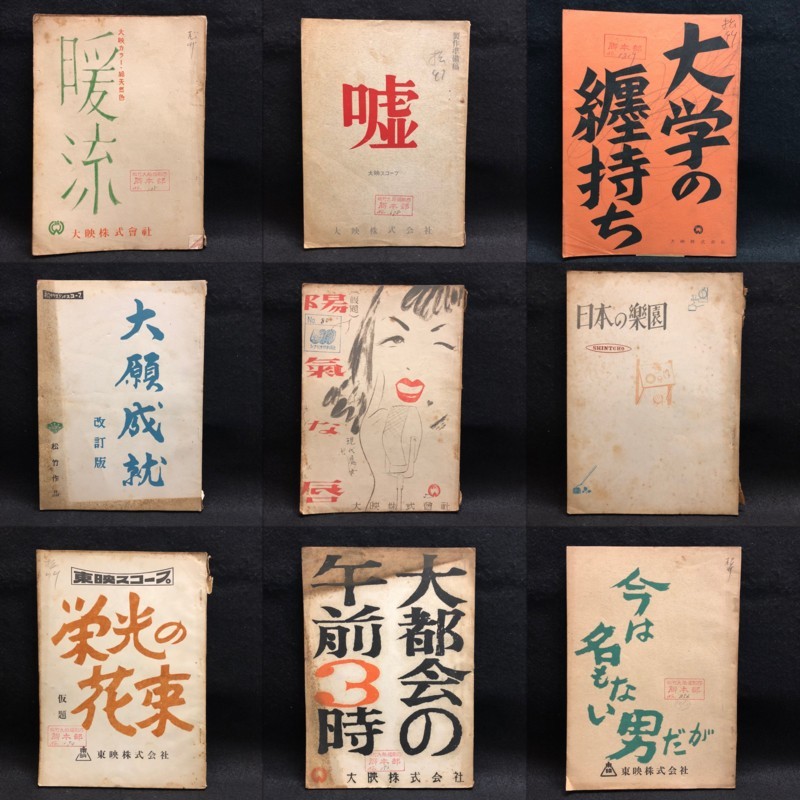 大映カラー・総天然色
暖流
大映株式會社
製作準備稿
嘘
大映スコープ
大映株式会社
大学の
纏持ち
大映株式会社
大願成就
改訂版
松竹作品
(假題)
陽氣な唇
大映株式會社
日本の樂園
SHINTOHO
東映スコープ
栄光の
花束
仮題
東映株式会社
大都会の
午前3時
大映株式会社
今は
名もない
男だが
東映株式会社